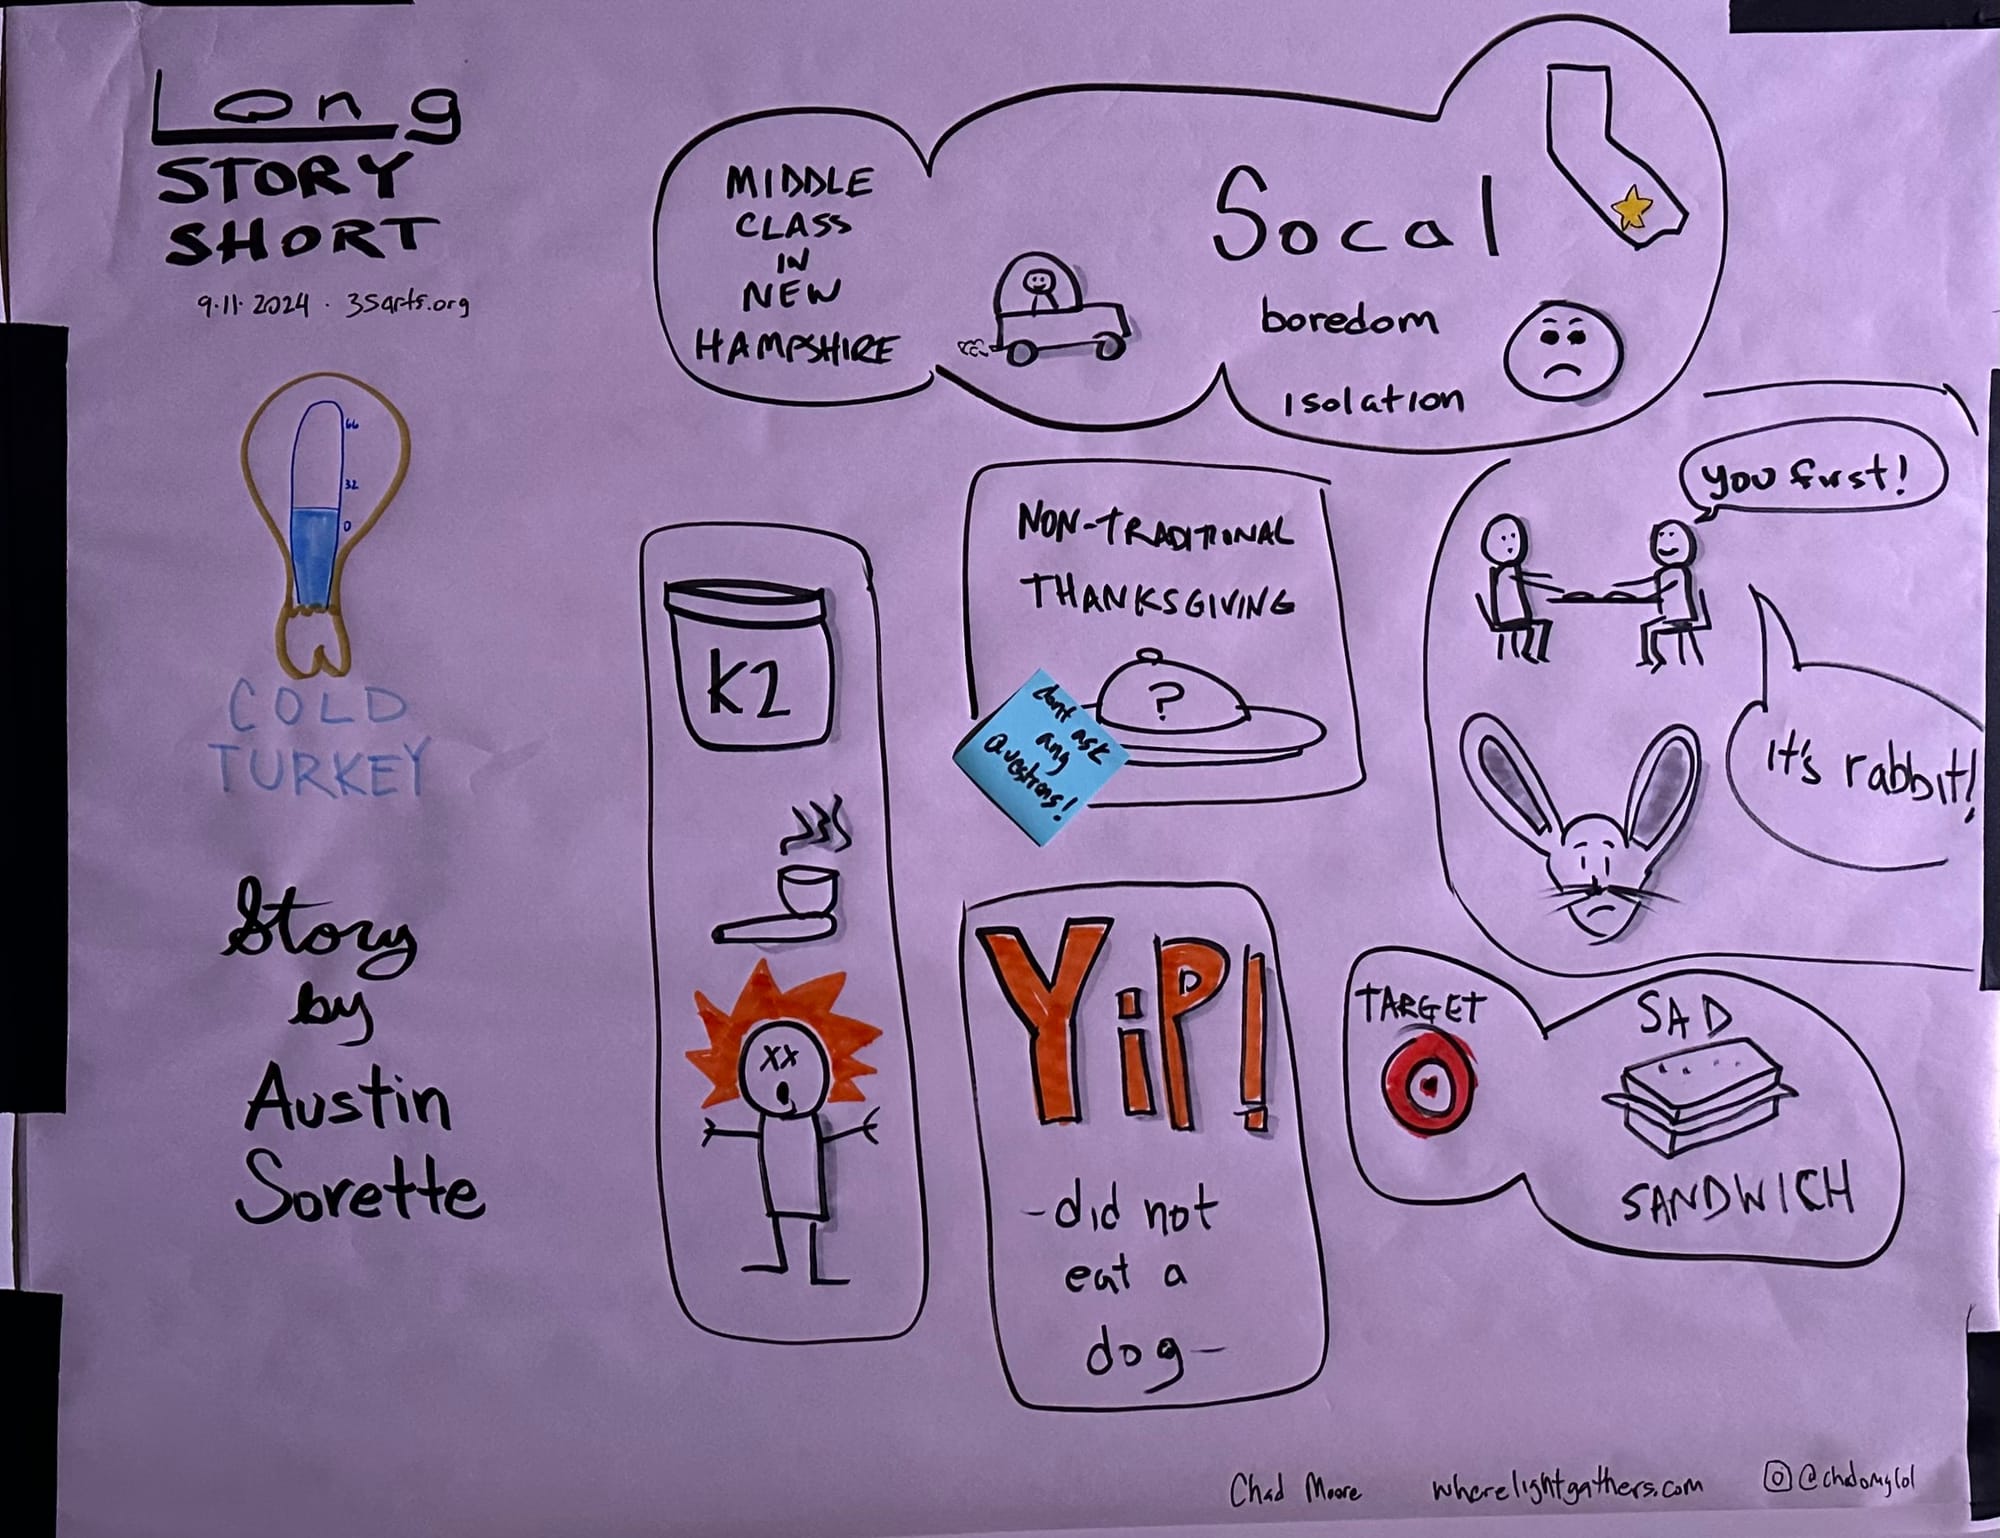 Long
STORY
SHORT
9.11.2024 . 3Sarts.org
66
32
0
COLD
TURKEY
Story
by
Austin
Sorette
MIDDLE
CLASS
IN
NEW
HAMPSHIRE
Socal
boredom
isolation
K2
NON-TRADITIONAL
THANKSGIVING
?
dont
ask
any
Questions!
you first!
it's rabbit!
YiP!
-did not
eat a
dog-
TARGET
SAD
SANDWICH
XX
Chad Moore wherelightgathers.com